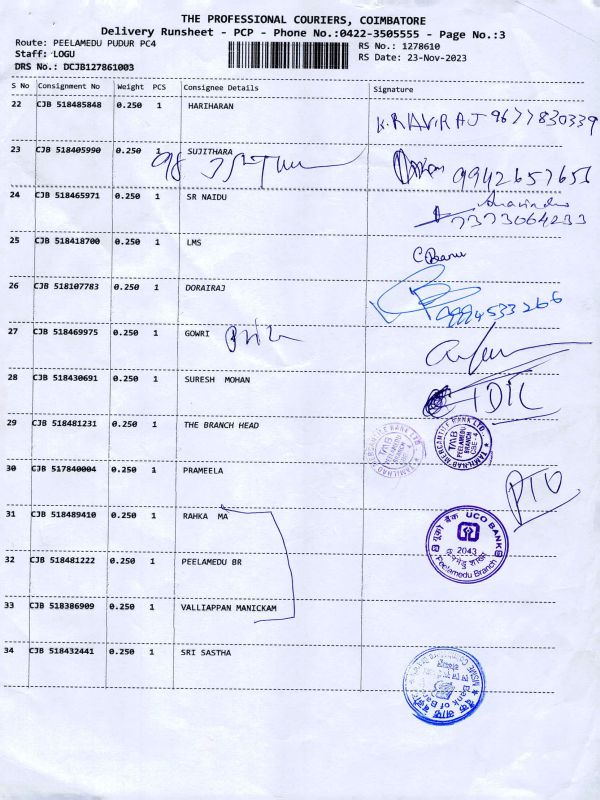 THE PROFESSIONAL COURIERS, COIMBATORE
Delivery Runsheet - PCP - Phone No.:0422-3505555 - Page No.:3
Route: PEELAMEDU PUDUR PC4
RS No.: 1278610
Staff: LOGU
RS Date: 23-Nov-2023
DRS No.: DCJB127861003
S No Consignment No Weight PCS Consignee Details Signature
22 CJB 518485848 0.250 1 HARIHARAN
K. RAVIRAJ 9677830339
23 CJB 518405990 0.250 1 SUJITHARA
9942657651
24 CJB 518465971 0.250 1 SR NAIDU
7373064233
25 CJB 518418700 0.250 1 LMS
26 CJB 518107783 0.250 1 DORAIRAJ
9994533266
27 CJB 518469975 0.250 1 GOWRI
28 CJB 518430691 0.250 1 SURESH MOHAN
29 CJB 518481231 0.250 1 THE BRANCH HEAD
TAMILNAD MERCANTILE BANK LTD.
TMB
PEELAMEDU
BRANCH
CBE-4
30 CJB 517840004 0.250 1 PRAMEELA
PTO
31 CJB 518489410 0.250 1 RAHKA MA
यूको बैंक UCO BANK
2043
Peelamedu Branch
32 CJB 518481222 0.250 1 PEELAMEDU BR
33 CJB 518386909 0.250 1 VALLIAPPAN MANICKAM
34 CJB 518432441 0.250 1 SRI SASTHA